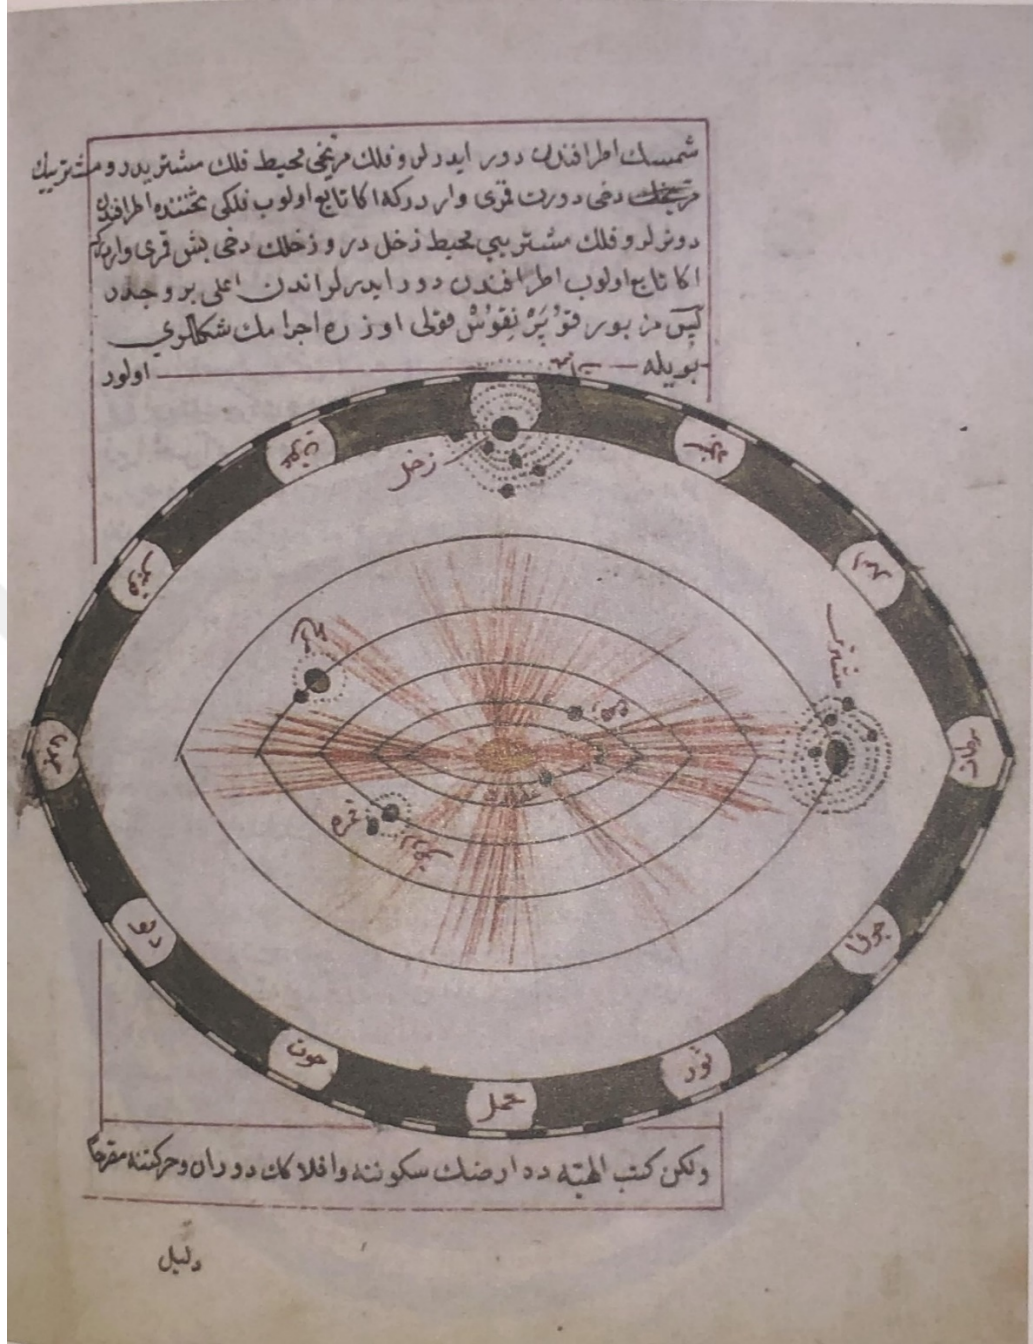 شمسك اطرافندن دور ايدرلر و فلك مريخى محيط فلك مشتريدر و مشترينك
مريخك دخى دورت قمرى واردركه اكا تابع اولوب فلكى تختنده اطرافندن
دونرلر و فلك مشتريى محيط زحل در و زحلك دخى بش قمرى واردركه
اكا تابع اولوب اطرافندن دور ايدرلر اندن اعلى بروجدر
پس مزبور قوپرنقوس قولى اوزره اجرامك شكللرى
بويله اولور
زحل
عقرب
سنبله
اسد
مشترى
سرطان
جوزا
ثور
حمل
حوت
دلو
مريخ
زهره
ولكن كتب الهيه ده ارضك سكوننه و افلاكك دوران و حركتنه مقرحا
دليل